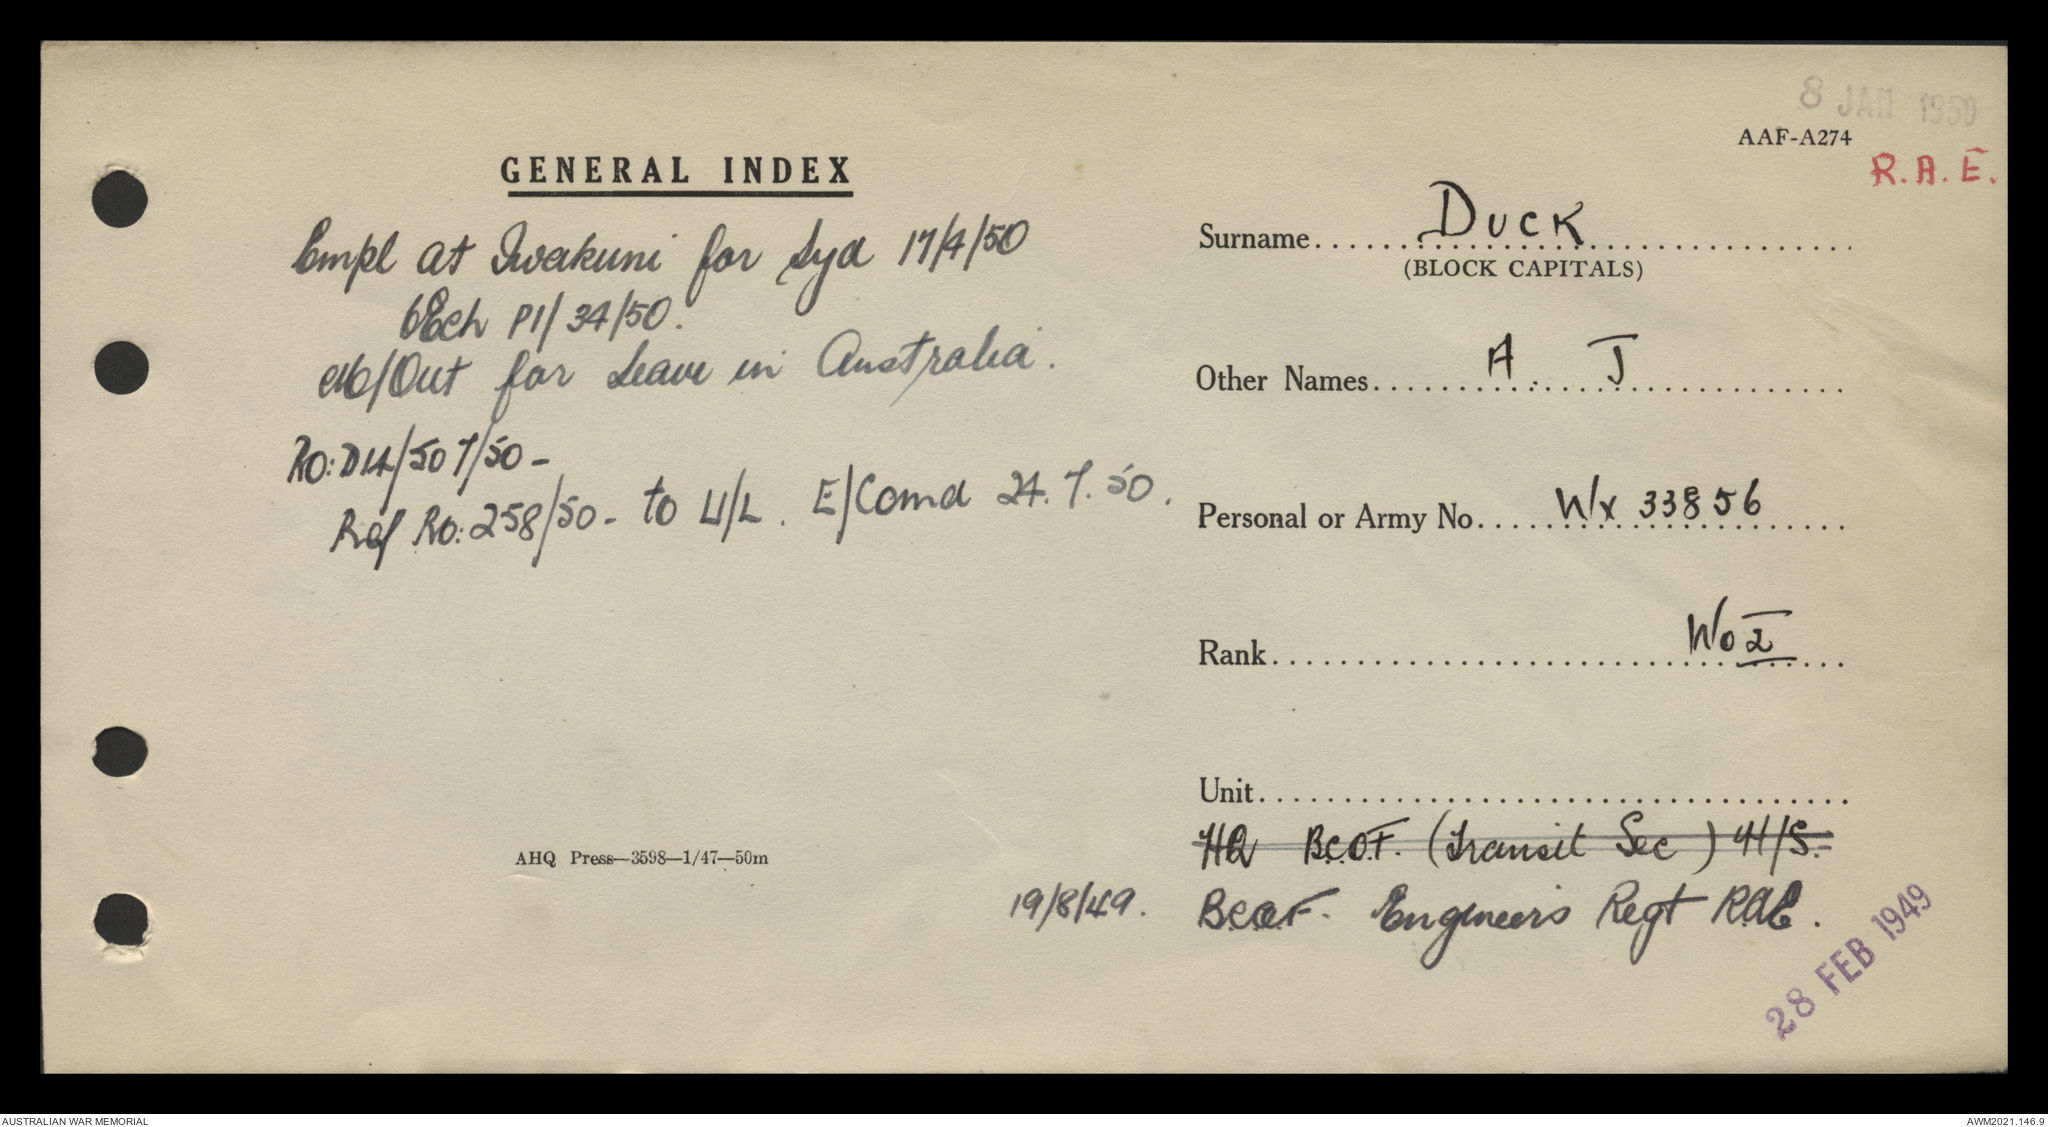 8 JAN 1950
AAF-A274
R.A.E.
GENERAL INDEX
Empl at Iwakuni for Syd 17/4/50
6Ech P1/34/50.
M/Out for Leave in Australia.
RO: D14/50 7/50 -
Ref Ro: 258/50 - to U/L. E/Comd 24.7.50.
AHQ Press—3598—1/47—50m
Surname DUCK
(BLOCK CAPITALS)
Other Names A. J
Personal or Army No. Wx 33856
Rank Wo 2
Unit
HQ B.C.O.F. (Transit Sec) 4H/S.
19/8/49. B.C.O.F. Engineers Regt RAE.
28 FEB 1949
AUSTRALIAN WAR MEMORIAL
AWM2021.146.9